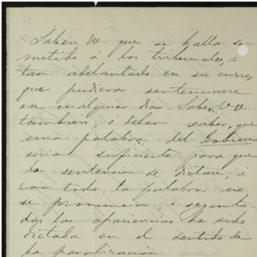 Saben VV que se halla so
metido á los tribunales, i
tan adelantado en su curso,
que pudiera sentenciarse
en cualquier dia. Saben VV
tambien, i deben saber, que
una palabra del Gobierno
seria suficiente para que
la sentencia se dictara; i
con todo, la palabra no
se pronuncia i segun to-
das las apariencias ha sido
dictada en el sentido de
la paralizacion.